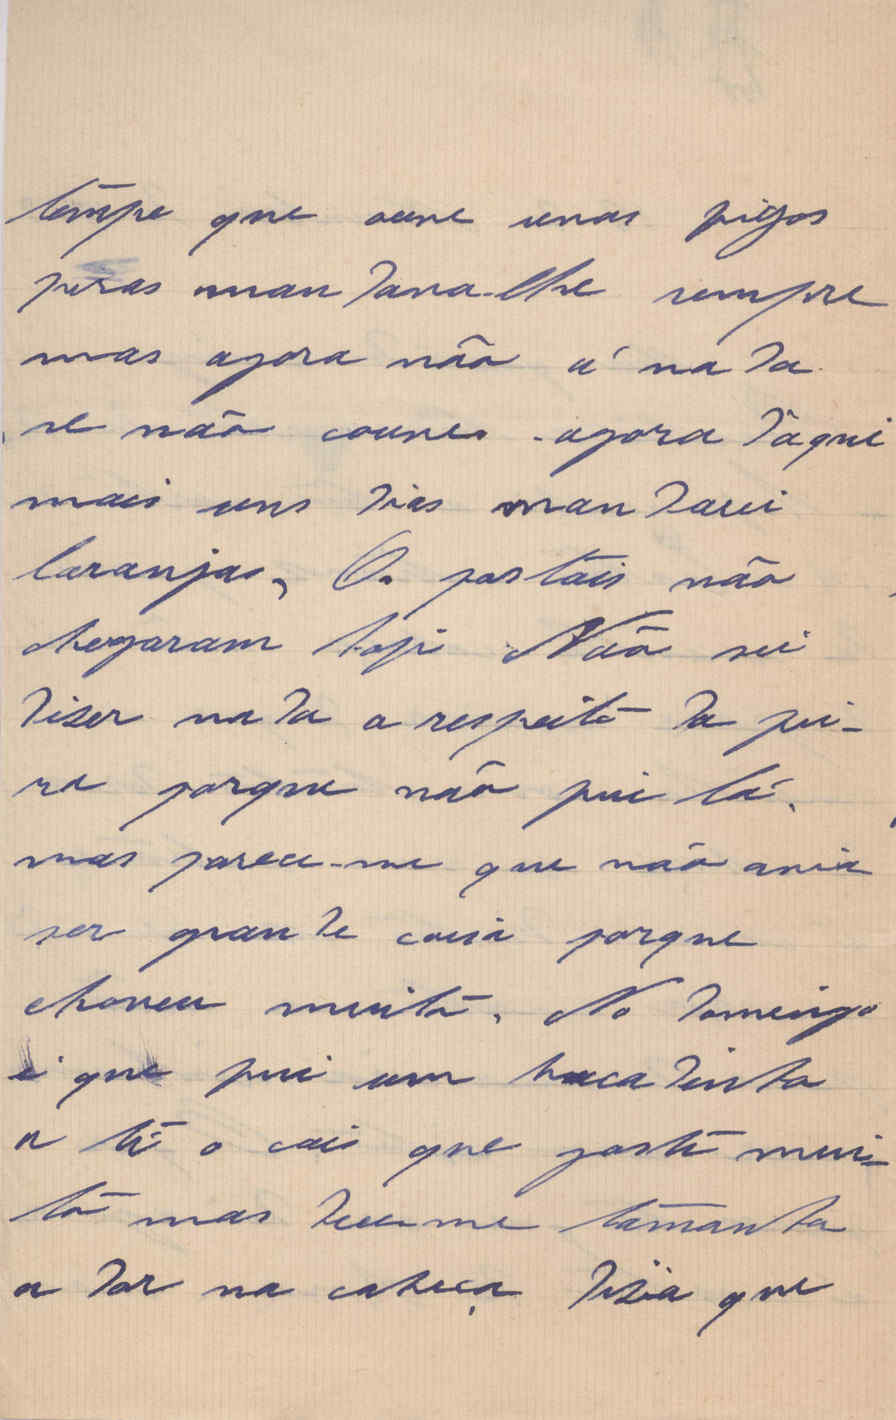 tempo que ouve unas figos
peras mandava-lhe sempre
mas agora não á nada
se não couves. agora dàqui
mais uns dias mandarei
laranjas, Os postais não
chegaram hoje Não sei
diser nada a respeito da fei-
ra porque não fui lá,
mas parece-me que não avia
ser grande coisa porque
choveu muito, No Domingo
é que fui um bucadinho
a té o cais que gostei mui-
to mas deu-me tamanha
a dor na cabeça disia que